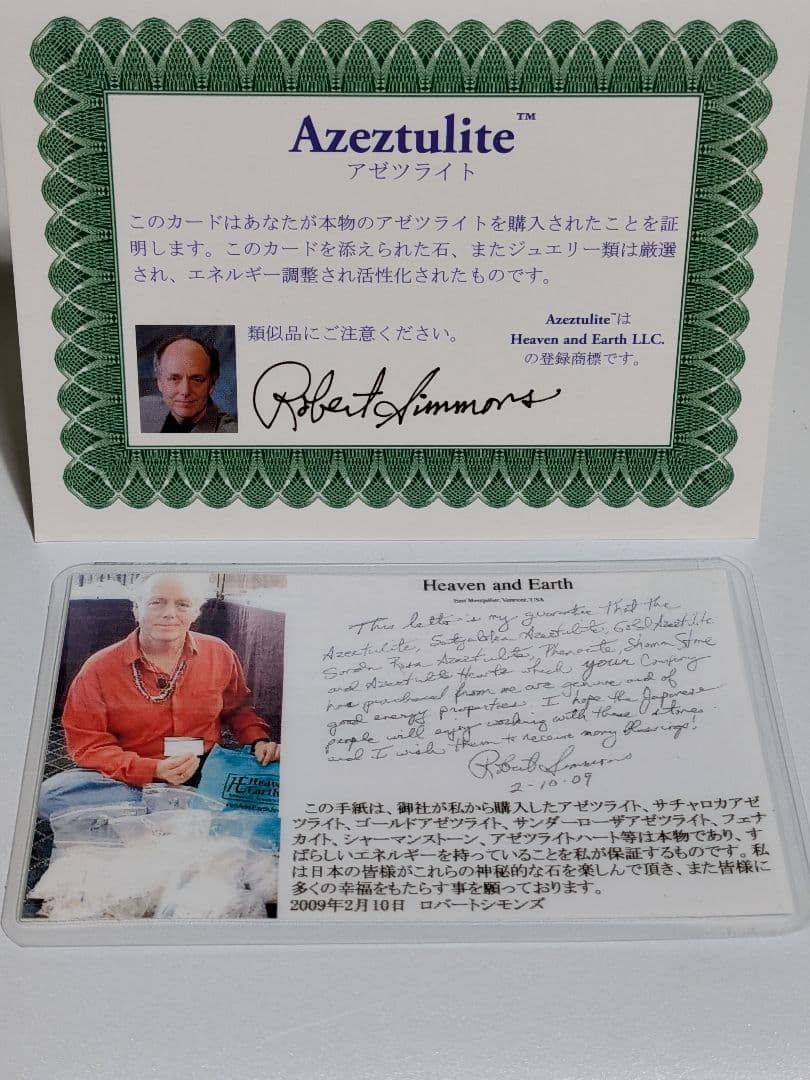 Azeztulite™
アゼツライト
このカードはあなたが本物のアゼツライトを購入されたことを証
明します。このカードを添えられた石、またジュエリー類は厳選
され、エネルギー調整され活性化されたものです。
類似品にご注意ください。
Azeztulite™は
Heaven and Earth LLC.
の登録商標です。
Robert Simmons
Heaven and Earth
East Montpelier, Vermont, USA
This letter is my guarantee that the
Azeztulite, Satyaloka Azeztulite, Gold Azeztulite
Rosa Azeztulite, Phenacite, Shaman Stone
and Azeztulite Hearts which your Company
has purchased from me are genuine and of
good energy properties. I hope the Japanese
people will enjoy working with these stones
and I wish them to receive many blessings!
Robert Simmons
2-10-09
Heaven
Earth
この手紙は、御社が私から購入したアゼツライト、サチャロカアゼ
ツライト、ゴールドアゼツライト、サンダーローザアゼツライト、フェナ
カイト、シャーマンストーン、アゼツライトハート等は本物であり、す
ばらしいエネルギーを持っていることを私が保証するものです。私
は日本の皆様がこれらの神秘的な石を楽しんで頂き、また皆様に
多くの幸福をもたらす事を願っております。
2009年2月10日 ロバートシモンズ